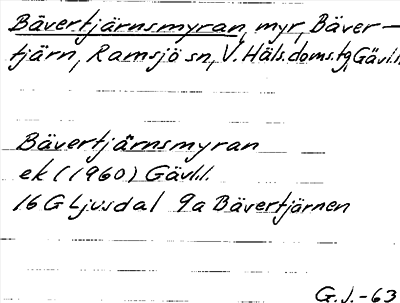 Bävertjärnsmyran, myr, Bäver-
tjärn, Ramsjö sn, V. Häls. doms. tg, Gävl.l.
Bävertjärnsmyran
ek (1960) Gävl.l.
16 G Ljusdal 9a Bävertjärnen
G.J.-63